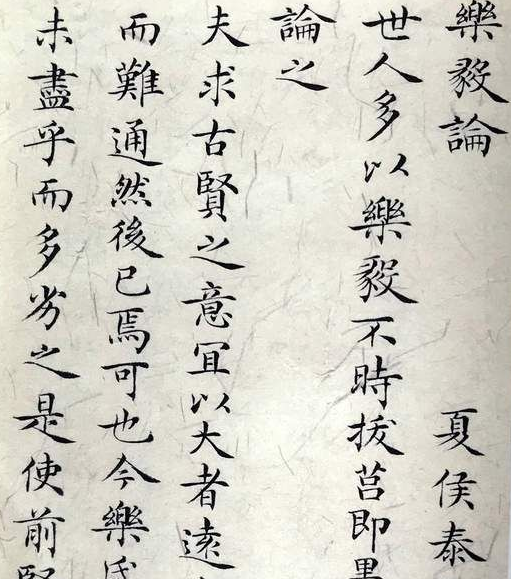 樂毅論 夏侯泰
世人多以樂毅不時拔莒即墨
論之
夫求古賢之意宜以大者遠
而難通然後已焉可也今樂氏
未盡乎而多劣之是使前賢